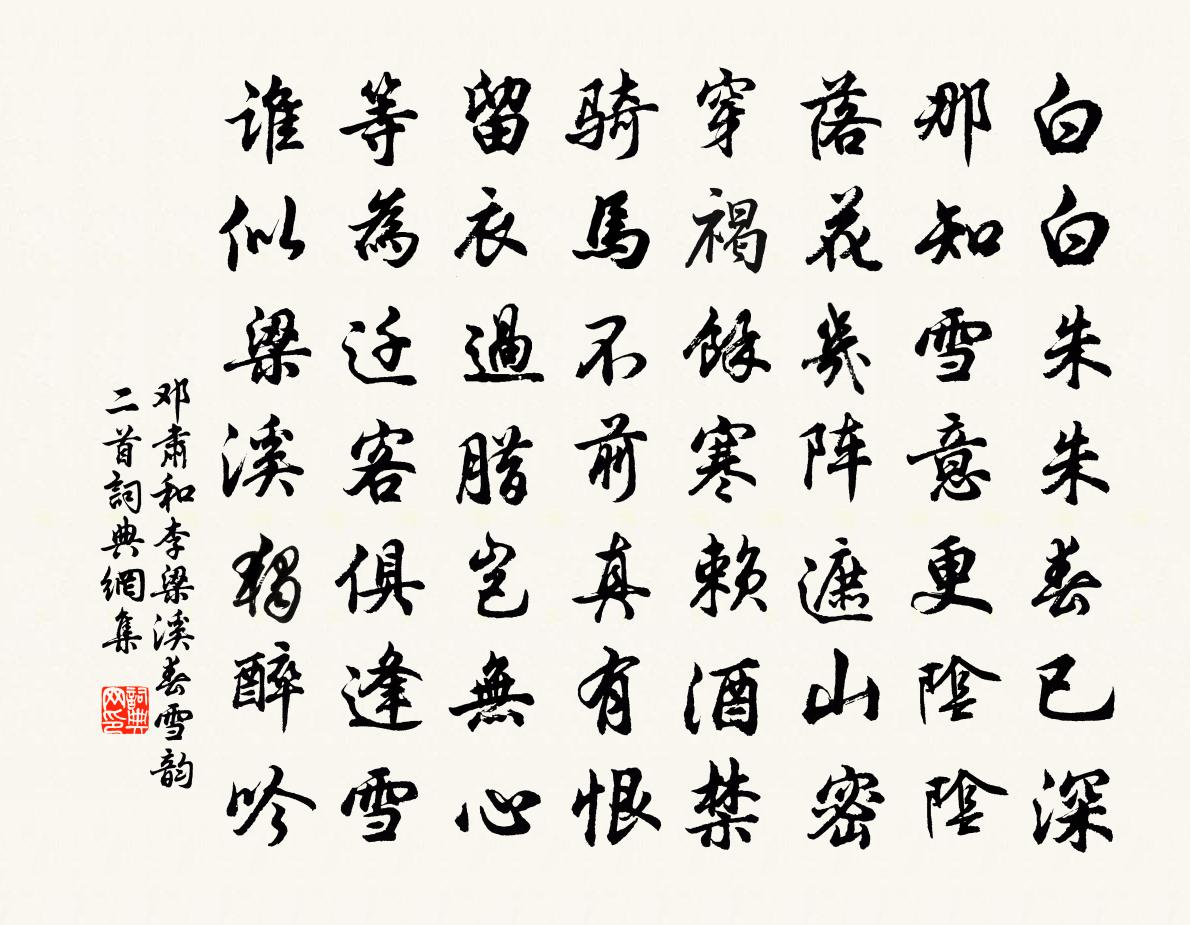 白白朱朱春已深
那知雪意更陰陰
落花幾阵遮山密
穿褐餘寒赖酒禁
骑馬不前真有恨
留衣過腊岂無心
等為迁客俱逢雪
谁似梁溪独醉吟
邓肃和李梁溪春雪韵
二首詞典網集
詞典
网印